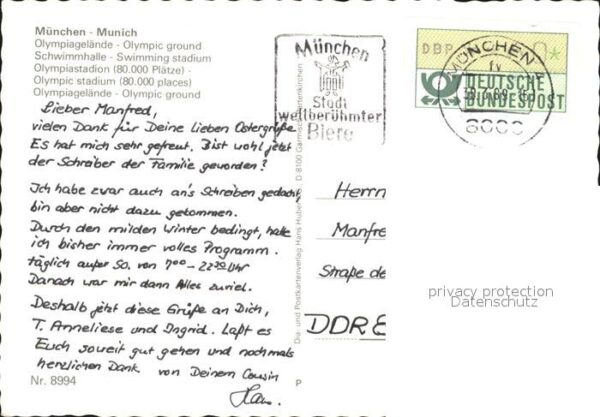 München - Munich
Olympiagelände - Olympic ground
Schwimmhalle - Swimming stadium
Olympiastadion (80.000 Plätze) -
Olympic stadium (80.000 places)
Olympiagelände - Olympic ground
Lieber Manfred,
vielen Dank für Deine lieben Ostergrüße.
Es hat mich sehr gefreut. Bist wohl jetzt
der Schreiber der Familie geworden?
Ich habe zwar auch an's Schreiben gedacht,
bin aber nicht dazu gekommen.
Durch den milden Winter bedingt, habe
ich bisher immer volles Programm.
täglich außer So. von 7⁰⁰ - 22³⁰ Uhr
Danach war mir dann Alles zuviel.
Deshalb jetzt diese Grüße an Dich,
T. Anneliese und Ingrid. Laßt es
Euch soweit gut gehen und nochmals
herzlichen Dank. von Deinem Cousin
Nr. 8994
Dia- und Postkartenverlag Hans Huber D-8100 Garmisch-Partenkirchen
P
München
Stadt
weltberühmter
Biere
DBP
MÜNCHEN
fv
8000
DEUTSCHE
BUNDESPOST
Herrn
Manfre
Straße de
DDR
privacy protection
Datenschutz